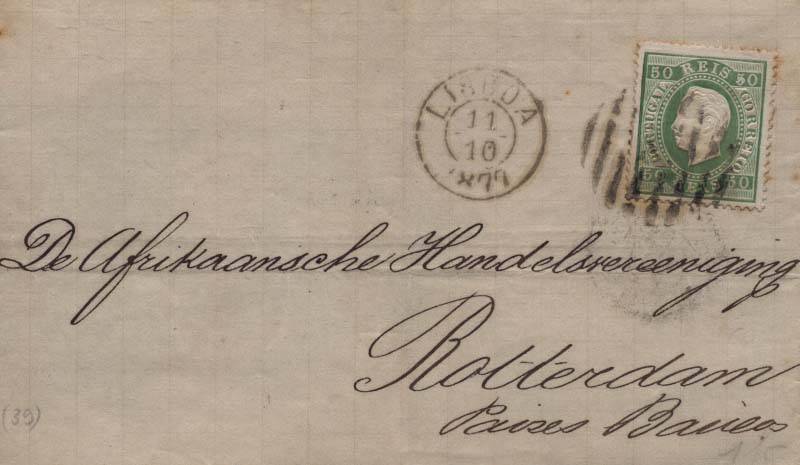 50 REIS 50
PORTUGAL
CORREIO
50 REIS 50
LISBOA
11
10
1877
De Afrikaansche Handelsvereeniging
Rotterdam
Paizes Baixos
(39)